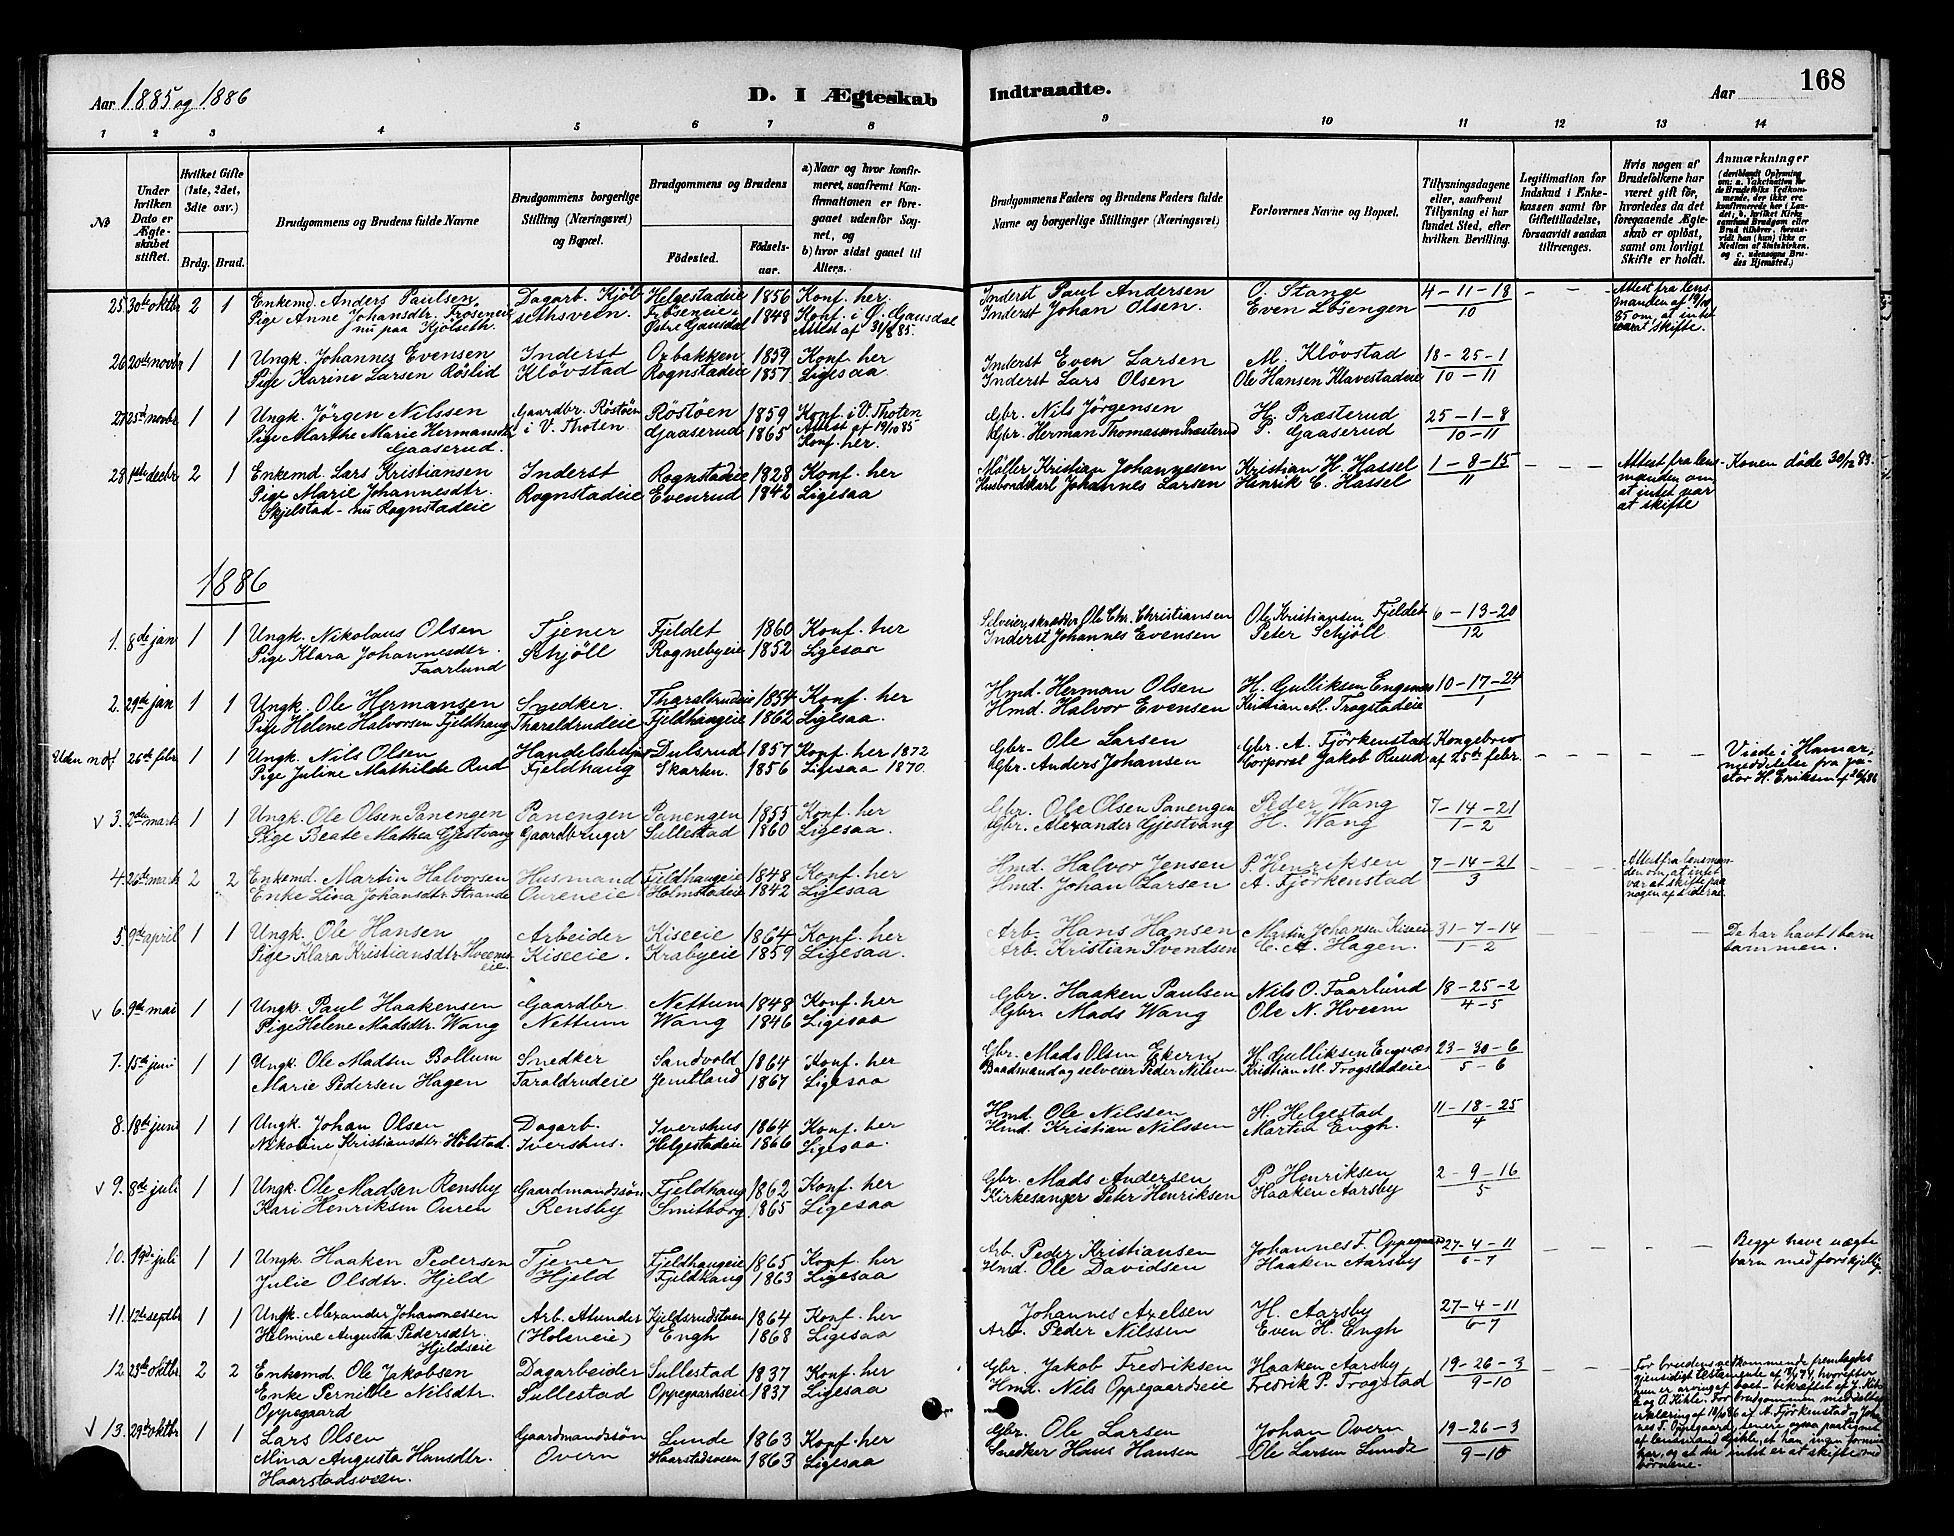 Aar 1885 og 1886
D. I Ægteskab Indtraadte.
Aar
168
1 2 3 4 5 6 7 8 9 10 11 12 13 14
No
Under hvilken Dato er Ægteskabet stiftet.
Hvilket Gifte (1ste, 2det, 3die osv.)
Brdg. Brud.
Brudgommens og Brudens fulde Navne
Brudgommens borgerlige Stilling (Næringsvei) og Bopæl.
Brudgommens og Brudens
Födested.
Födselsaar.
a) Naar og hvor konfirmeret, saafremt Konfirmationen er foregaaet udenfor Sognet, og b) hvor sidst gaaet til Alters.
Brudgommens Faders og Brudens Faders fulde Navne og borgerlige Stillinger (Næringsvei)
Forlovernes Navne og Bopæl.
Tillysningsdagene eller, saafremt Tillysning ei har fundet Sted, efter hvilken Bevilling.
Legitimation for Indskud i Enkekassen samt for Giftetilladelse, forsaavidt saadan tiltrænges.
Hvis nogen af Brudefolkene har været gift för, hvorledes da det foregaaende Ægteskab er oplöst, samt om lovligt Skifte er holdt.
Anmærkninger
25. 30te oktbr 2 1 Enkemd. Anders Paulsen Dagarb. Kjöl- Helgestadeie 1856 Konf. her. Inderst Paul Andersen O. Stange 4-11-18 - - Attest fra lens
Pige Anne Johansdtr. Froseneie sethsveen. Froseneie 1848 Konf. i Ö. Gausdal Inderst Johan Olsen. Even Lösengen 10 manden af 19/10
nu paa Kjölseth. Östre Gausdal Attest af 31/8 85. 85 om, at intet
var at skifte.
26. 20de novbr 1 1 Ungk. Johannes Evensen Inderst Oxbakken 1859 Konf. her Inderst Even Larsen M. Klövstad 18-25-1
Pige Karine Larsen Röslid Klövstad Rognstadeie 1857 Ligesaa Inderst Lars Olsen Ole Hansen Klavestadeie 10-11
27. 25de novbr 1 1 Ungk. Jörgen Nilssen Gaardbr. Röstöen Röstöen 1859 Konf. i V. Thoten Gbr. Nils Jörgensen H. Præsterud 25-1-8
Pige Marthe Marie Hermansdtr i V. Thoten Gaaserud 1865 Attest af 19/10 85 Gbr. Herman Thomassen Præsterud P. Gaaserud 10-11
Gaaserud. Konf. her.
28. 1ste decbr 2 1 Enkemd. Lars Kristiansen Inderst Rognstadeie 1828 Konf. her Møller Kristian Johannesen Kristian H. Hassel 1-8-15 - - Attest fra lens- Konen döde 30/12 83.
Pige Marie Johannesdtr. Rognstadeie Evenrud 1842 Ligesaa Husbondskarl Johannes Larsen Henrik C. Hassel 11 manden om,
Skjelstad - nu Rognstadeie at intet var
at skifte
1886
1. 8de jan 1 1 Ungk. Nikolaus Olsen Tjener Fjeldet 1860 Konf. her Selveier, skrædder Ole Chr. Christiansen Ole Kristiansen Fjeldet 6-13-20
Pige Klara Johannesdtr. Schjöll Rognebyeie 1852 Ligesaa Inderst Johannes Evensen Peter Schjöll 12
Faarlund
2. 29de jan 1 1 Ungk. Ole Hermansen Snedker. Tharaldrudeie 1854 Konf. her Hmd. Herman Olsen H. Gulliksen Engenes 10-17-24
Pige Helene Halvorsen Fjeldhaug Tharaldrudeie Fjeldhaugeie 1862 Ligesaa. Hmd. Halvor Evensen Kristian M. Trogstadeie 1
Uden no 26de febr 1 1 Ungk. Nils Olsen Handelsbetjent Dulsrud 1857 Konf. her 1872 Gbr. Ole Larsen Gbr. A. Fjörkenstad Kongebrev - - - Viede i Hamar,
Pige Juline Mathilde Rud Fjeldhaug Skarten. 1856 Ligesaa 1870. Gbr. Anders Johansen Corporal Jakob Rusid af 25de febr. meddelelse fra pa-
stor H. Eriksen
v 3. 2den marts 1 1 Ungk. Ole Olsen Panengen Panengen Panengen 1855 Konf. her Gbr. Ole Olsen Panengen Peder Wang 7-14-21
Pige Beate Mathea Gjestvang Gaardbruger Sullestad 1860 Ligesaa. Gbr. Alexander Gjestvang H. Wang 1-2
4. 26de marts 2 2 Enkemd. Martin Halvorsen Husmand Fjeldhaugeie 1848 Konf. her Hmd. Halvor Jensen P. Henriksen 7-14-21 - - Attest fra lensman-
Enke Lina Johansdtr. Strande Oureneie Holmstadeie 1842 Ligesaa Hmd. Johan Larsen A. Fjörkenstad 3 den om, at intet
var at skifte paa
nogen af siderne.
5. 9de april 1 1 Ungk. Ole Hansen Arbeider Kiseeie 1864 Konf. her Arb. Hans Hansen Martin Johansen Kiseeie 31-7-14 - - - De har havt 1 barn
Pige Klara Kristiansdtr. Hveems- Kiseeie. Krabyeie 1859 Ligesaa. Arb. Kristian Svendsen C. A. Hagen. 1-2 sammen.
eie.
v 6. 9de mai 1 1 Ungk. Paul Haakensen Gaardbr. Nettum 1848 Konf. her Gbr. Haaken Paulsen Nils O. Faarlund 18-25-2
Pige Helene Madsdtr. Wang Nettum Wang 1846 Ligesaa Gbr. Mads Wang Ole N. Hveem 4-5
7. 15de juni 1 1 Ungk. Ole Madsen Bollum Snedker Sandvold 1864 Konf. her Gbr. Mads Olsen Ekern H. Gulliksen Engnæs 23-30-6
Marie Pedersen Hagen Taraldrudeie Jemtland 1867 Ligesaa Baadsmand og selveier Peder Nilsen Kristian M. Trogstadeie 5-6
8. 18de juni 1 1 Ungk. Johan Olsen Dagarb. Ivershus 1864 Konf. her Hmd. Ole Nilssen H. Helgestad 11-18-25
Nikoline Kristiansdtr. Hölstad. Ivershus. Helgestadeie 1866 Ligesaa. Hmd. Kristian Nilssen Martin Engh. 4
v 9. 8de juli 1 1 Ungk. Ole Madsen Rensby Gaardmandssön Fjeldhaug 1862 Konf. her Gbr. Mads Andersen P. Henriksen 2-9-16
Kari Henriksen Ouren Rensby Smitborg 1865 Ligesaa Kirkesanger Peter Henriksen Haaken Aarsby 5
10. 19de juli 1 1 Ungk. Haaken Pedersen Tjener Fjeldhaugeie 1865 Konf. her Arb. Peder Kristiansen Johannes T. Oppegaard 27-4-11 - - - Begge have uægte
Julie Olsdtr. Hjeld Hjeld Fjeldhaug 1863 Ligesaa Hmd. Ole Davidsen Haaken Aarsby 6-7 barn med forskjellig.
11. 12te septbr 1 1 Ungk. Alexander Johannessen Arb. Alunder Kjeldsrudstuen 1864 Konf. her Johannes Axelsen H. Aarsby 27-4-11
Helmine Augusta Pedersdtr. (Holsneie) Engh 1868 Ligesaa Arb. Peder Nilssen Even H. Engh 6-7
Hjeldseie
12. 23de oktbr 2 2 Enkemd. Ole Jakobsen Dagarbeider Sullestad 1837 Konf. her Gbr. Jakob Fredriksen Haaken Aarsby 19-26-3 - - For brudens vedkommende fremlagdes
Enke Pernille Nilsdtr. Sullestad Oppegaardseie 1837 Ligesaa Hmd. Nils Oppegaardseie Fredrik P. Trogstad 9-10 gjensidigt testamente
Oppegaard
v 13. 29de oktbr 1 1 Lars Olsen Gaardmandssön Lunde 1863 Konf. her Gbr. Ole Larsen Johan Overn 19-26-3
Mina Augusta Hansdtr. Overn Haarstadsveen 1863 Ligesaa Snedker Hans Hansen Ole Larsen Lunde 9-10
Haarstadsveen.
har, og at der intet er at skifte med
börnene.